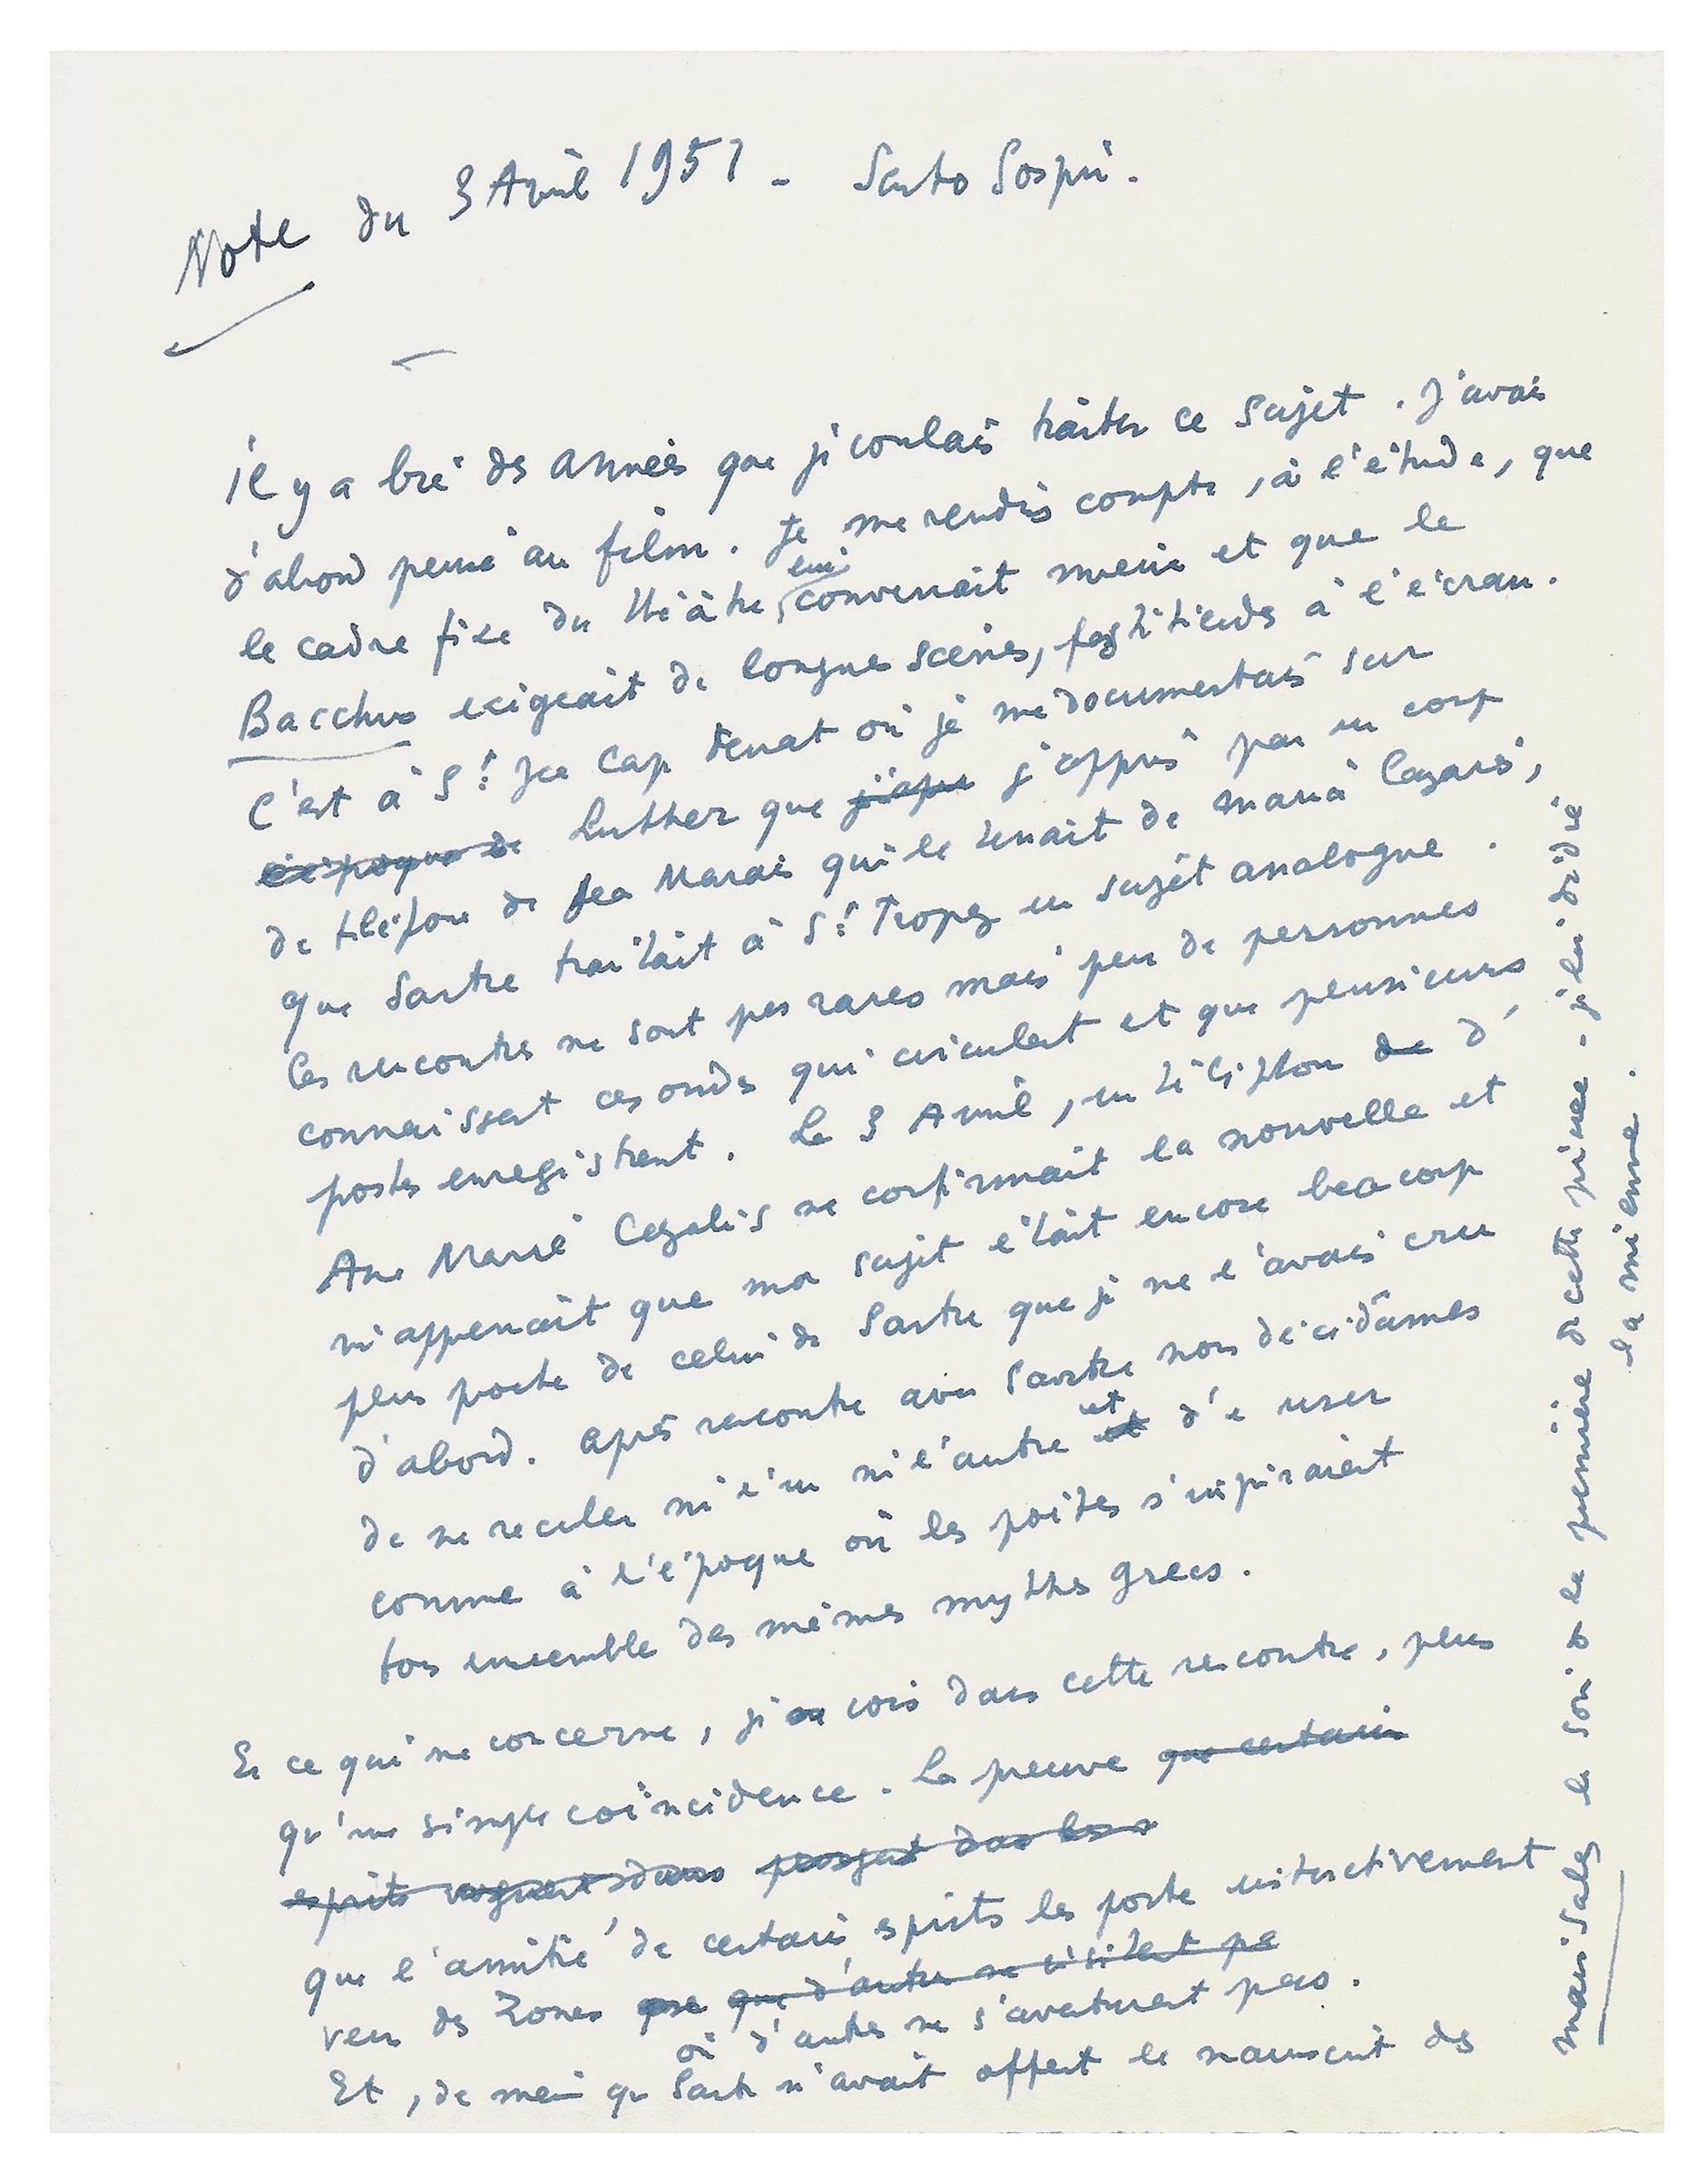 Note du 3 Avril 1951 - Santo Sospir.
Il y a bie des années que je voulais traiter ce sujet. J'avais
d'abord pensé au film. Je me rendis compte, à l'étude, que
le cadre fixe du théâtre lui convenait mieux et que le
Bacchus exigeait de longues scènes, fastidieuses à l'écran.
C'est à St Jea Cap Ferrat où je me documentais sur
l'époque de Luther que j'appris par un coup
de téléfone de Jea Marais qui le tenait de Maria Cazarès,
que Sartre traitait à St Tropez un sujet analogue.
Ces rencontres ne sont pas rares mais peu de personnes
connaissent ces ondes qui circulent et que plusieurs
postes enregistrent. Le 3 Avril, un téléphon de d'
Ane Marie Cazalis me confirmait la nouvelle et
m'apprenait que mon sujet était encore beacoup
plus proche de celui de Sartre que je ne l'avais cru
d'abord. Après rencontre avec Sartre nous décidâmes
de ne reculer ni l'un ni l'autre et d'e user
comme à l'époque où les poètes s'inspiraient
tous ensemble des mêmes mythes grecs.
En ce qui me concerne, je vois dans cette rencontre, plus
qu'une simple coïncidence. La preuve que certain
esprits voguent dans
que l'amitié de certains esprits les porte instinctivement
vers des zones que d'autre ne visitent pa
où d'autres ne s'aventurent pas.
Et, de même que Sartre m'avait offert le manuscrit des
mains sales le soir de la première de cette pièce - je lui dédie
la mienne.